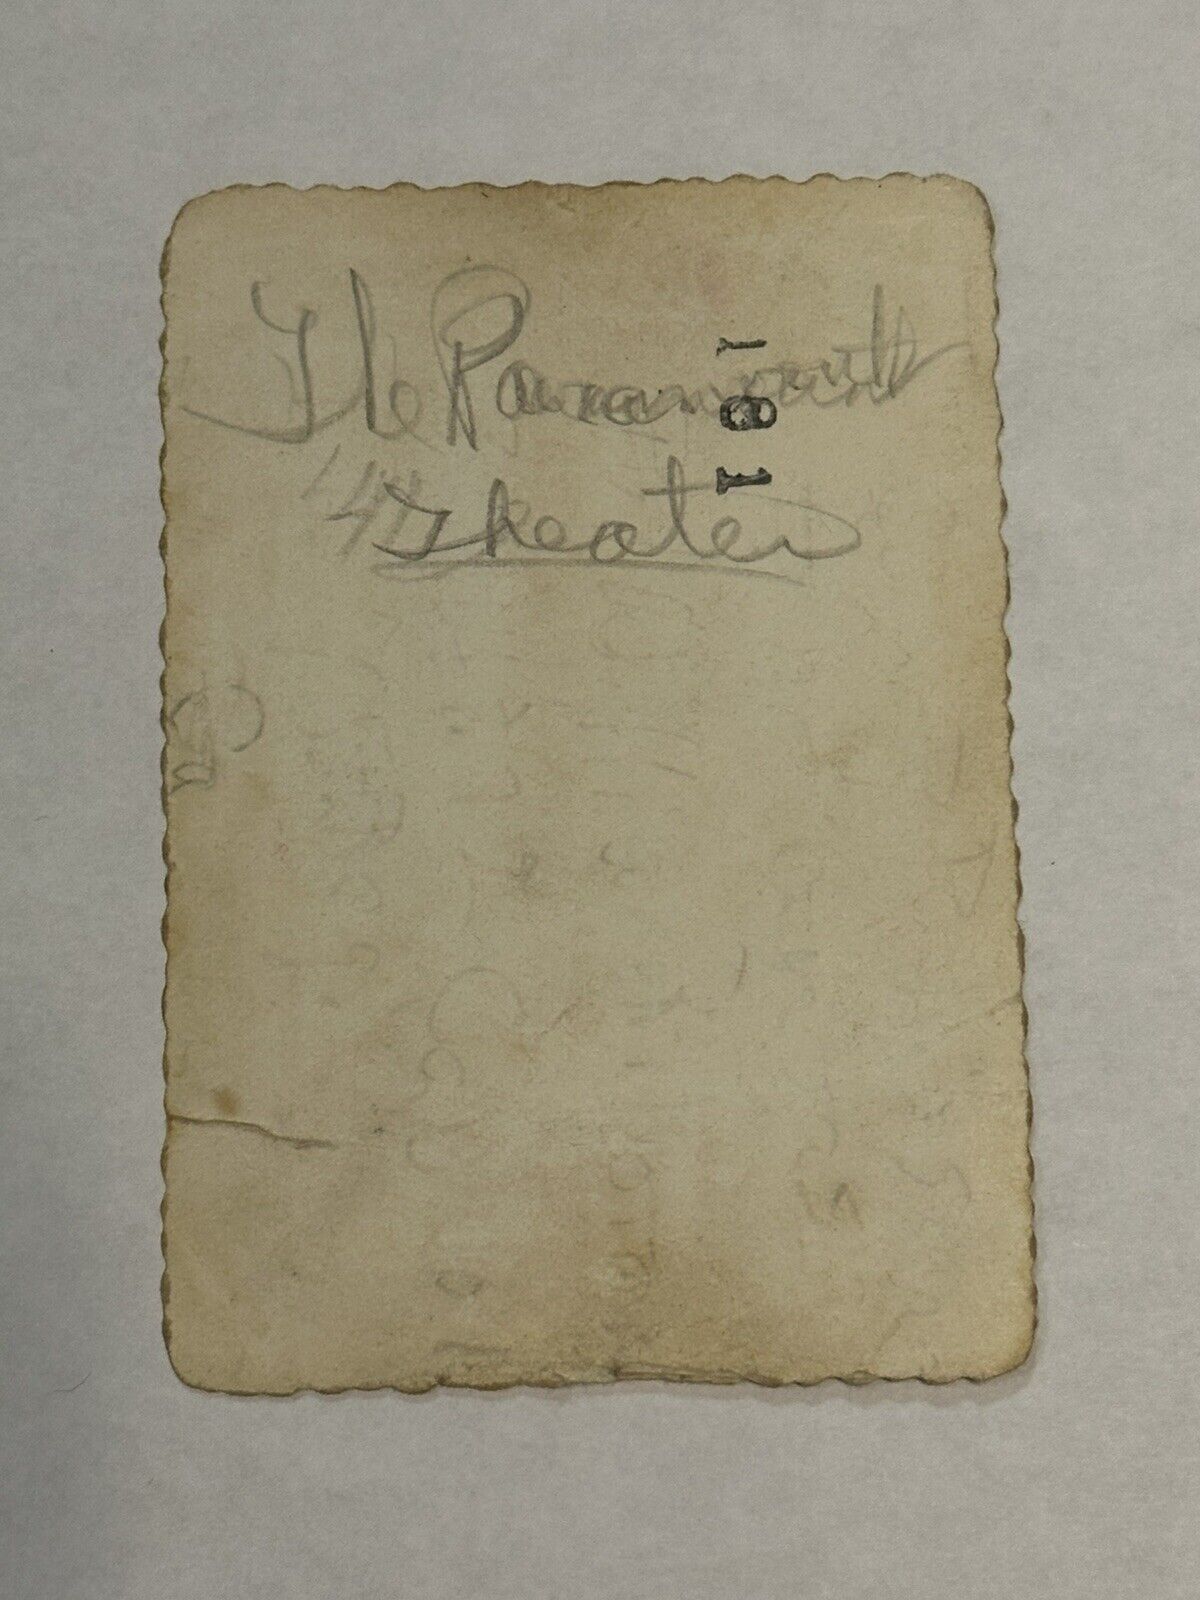 The Paramount
Theater